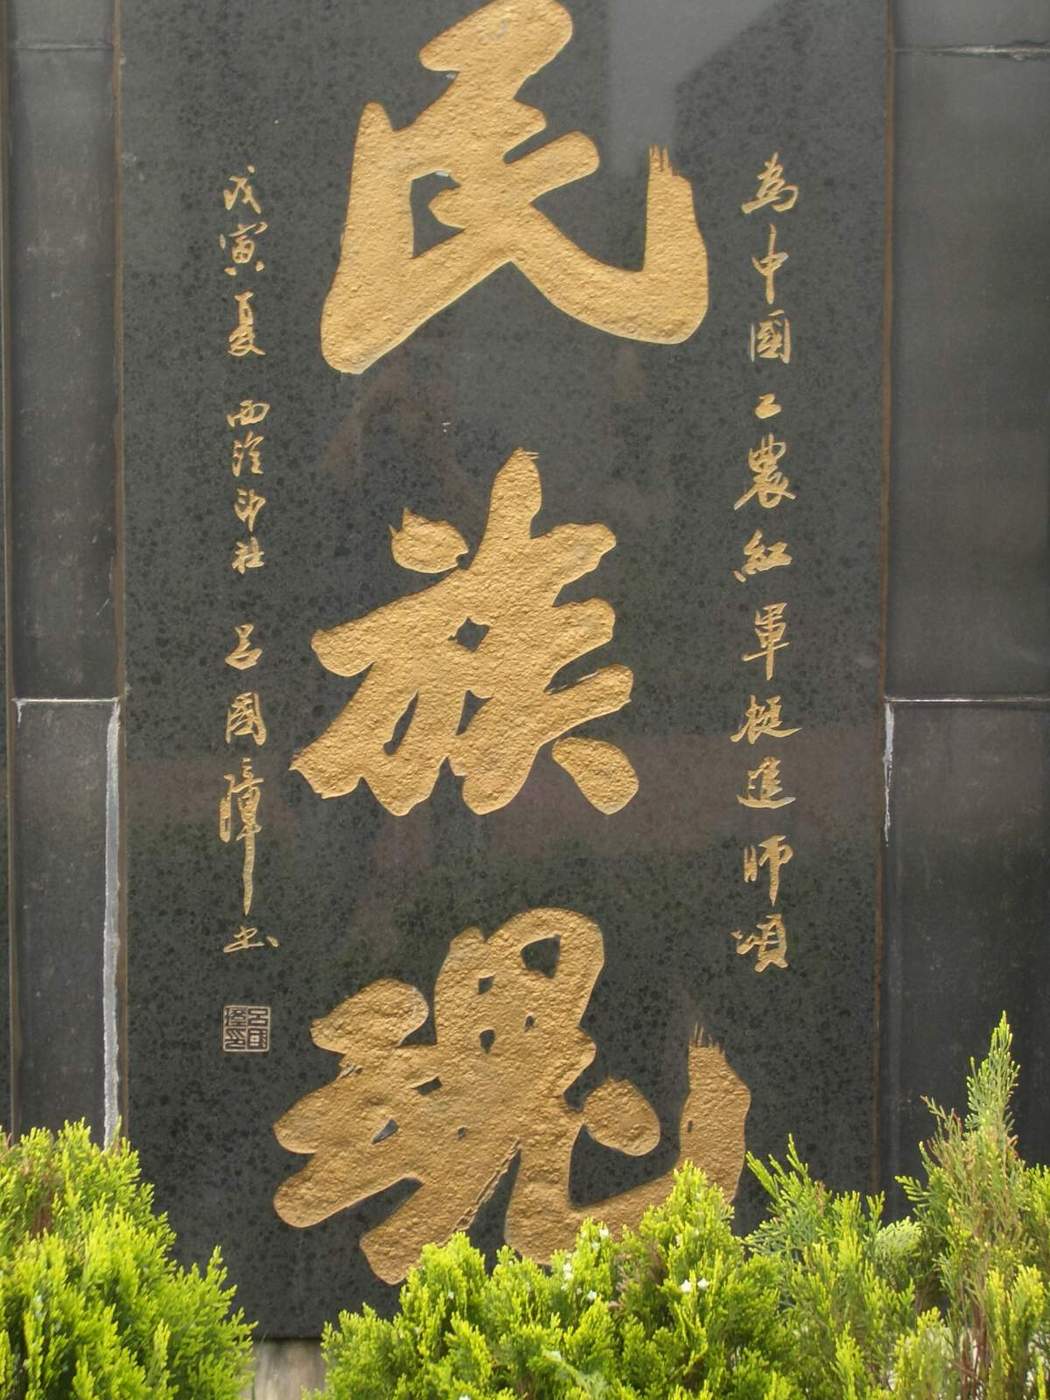 為中國工農紅軍挺進師頌
民族魂
戊寅夏 西泠印社 呂國璋书